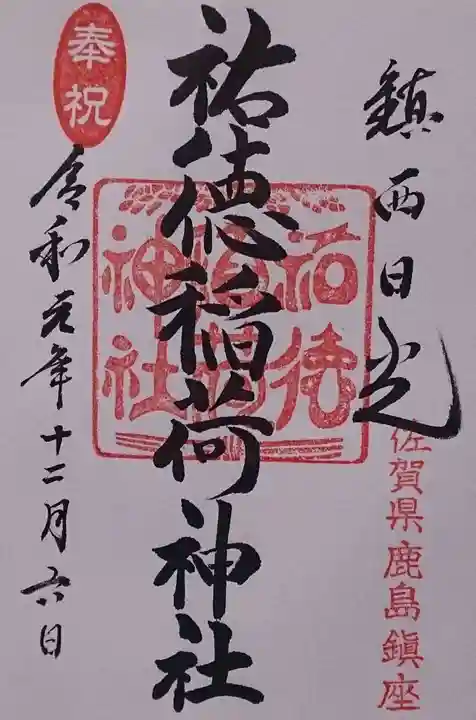 鎮西日光
佐賀県鹿島鎮座
祐徳稲荷神社
祐徳
稲荷
神社
奉祝
令和元年十二月六日